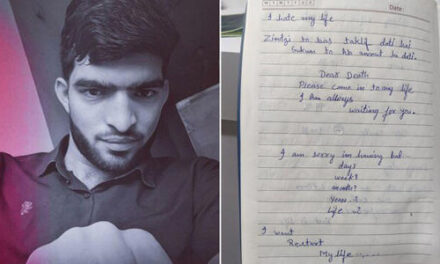 Date:
I hate my life
Zindgi to bas taklif deti hai
to maut hi deti.
Dear Death
Please come into my life
I am always
waiting for you.
I am sorry im having bad
days
week?
month?
Years?
Life?
I want
Restart
My life